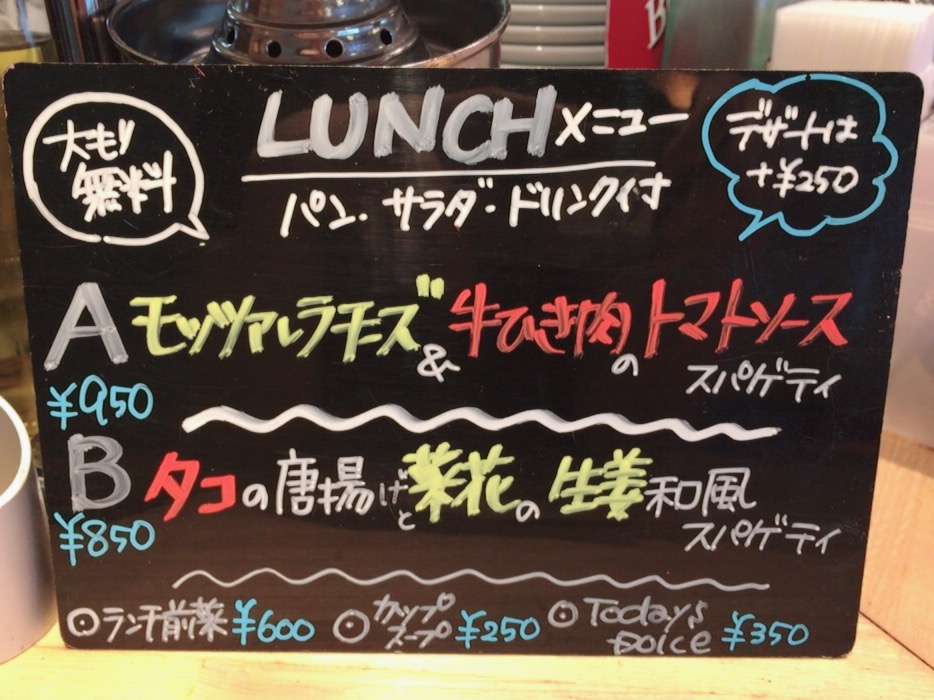 大もり
無料
LUNCHメニュー
デザートは
+¥250
パン・サラダ・ドリンク付
A モッツァレラチーズ&牛ひき肉のトマトソース
スパゲティ
¥950
B タコの唐揚げと菜花の生姜和風
スパゲティ
¥850
◎ランチ前菜 ¥600
◎カップスープ ¥250
◎Today's Dolce ¥350